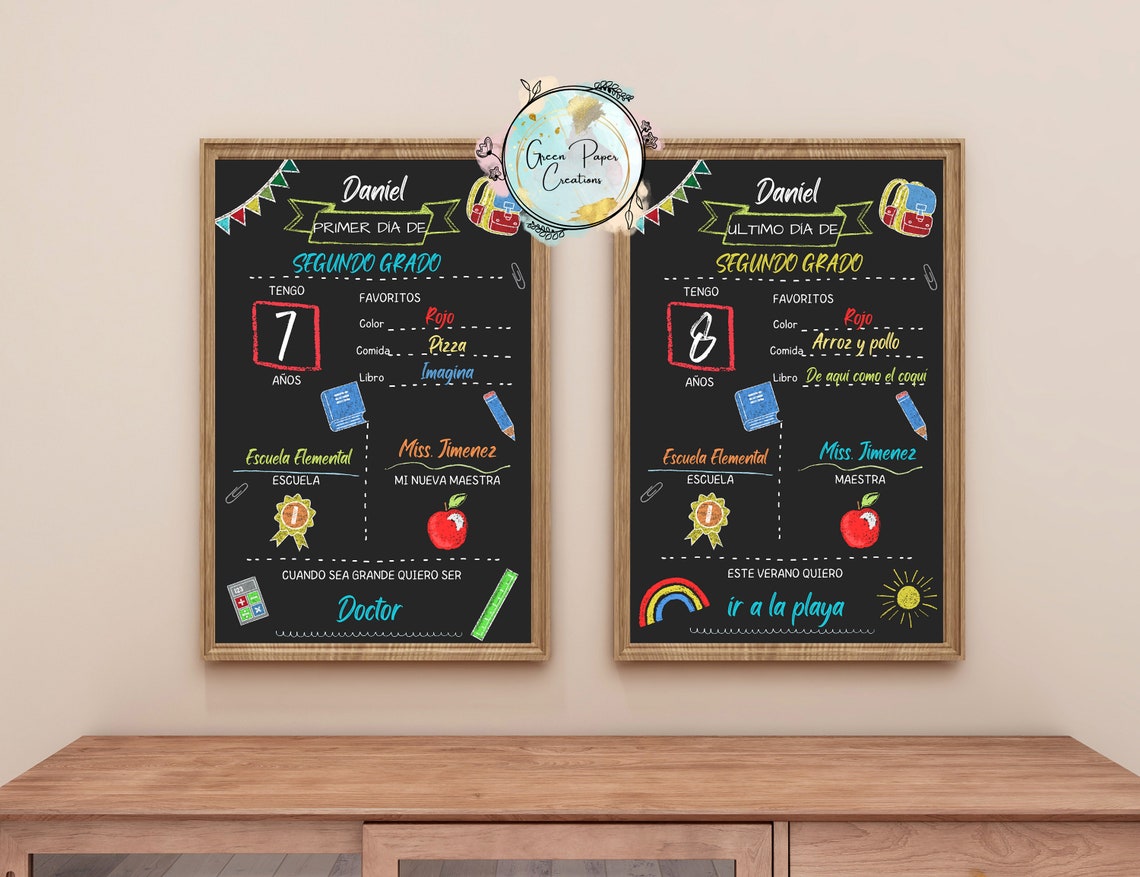 Green Paper
Creations
Daniel
PRIMER DIA DE
SEGUNDO GRADO
TENGO
7
AÑOS
FAVORITOS
Color Rojo
Comida Pizza
Libro Imagina
Escuela Elemental
ESCUELA
Miss. Jimenez
MI NUEVA MAESTRA
1
CUANDO SEA GRANDE QUIERO SER
Doctor
Daniel
ULTIMO DIA DE
SEGUNDO GRADO
TENGO
8
AÑOS
FAVORITOS
Color Rojo
Comida Arroz y pollo
Libro De aqui como el coqui
Escuela Elemental
ESCUELA
Miss. Jimenez
MAESTRA
1
ESTE VERANO QUIERO
ir a la playa